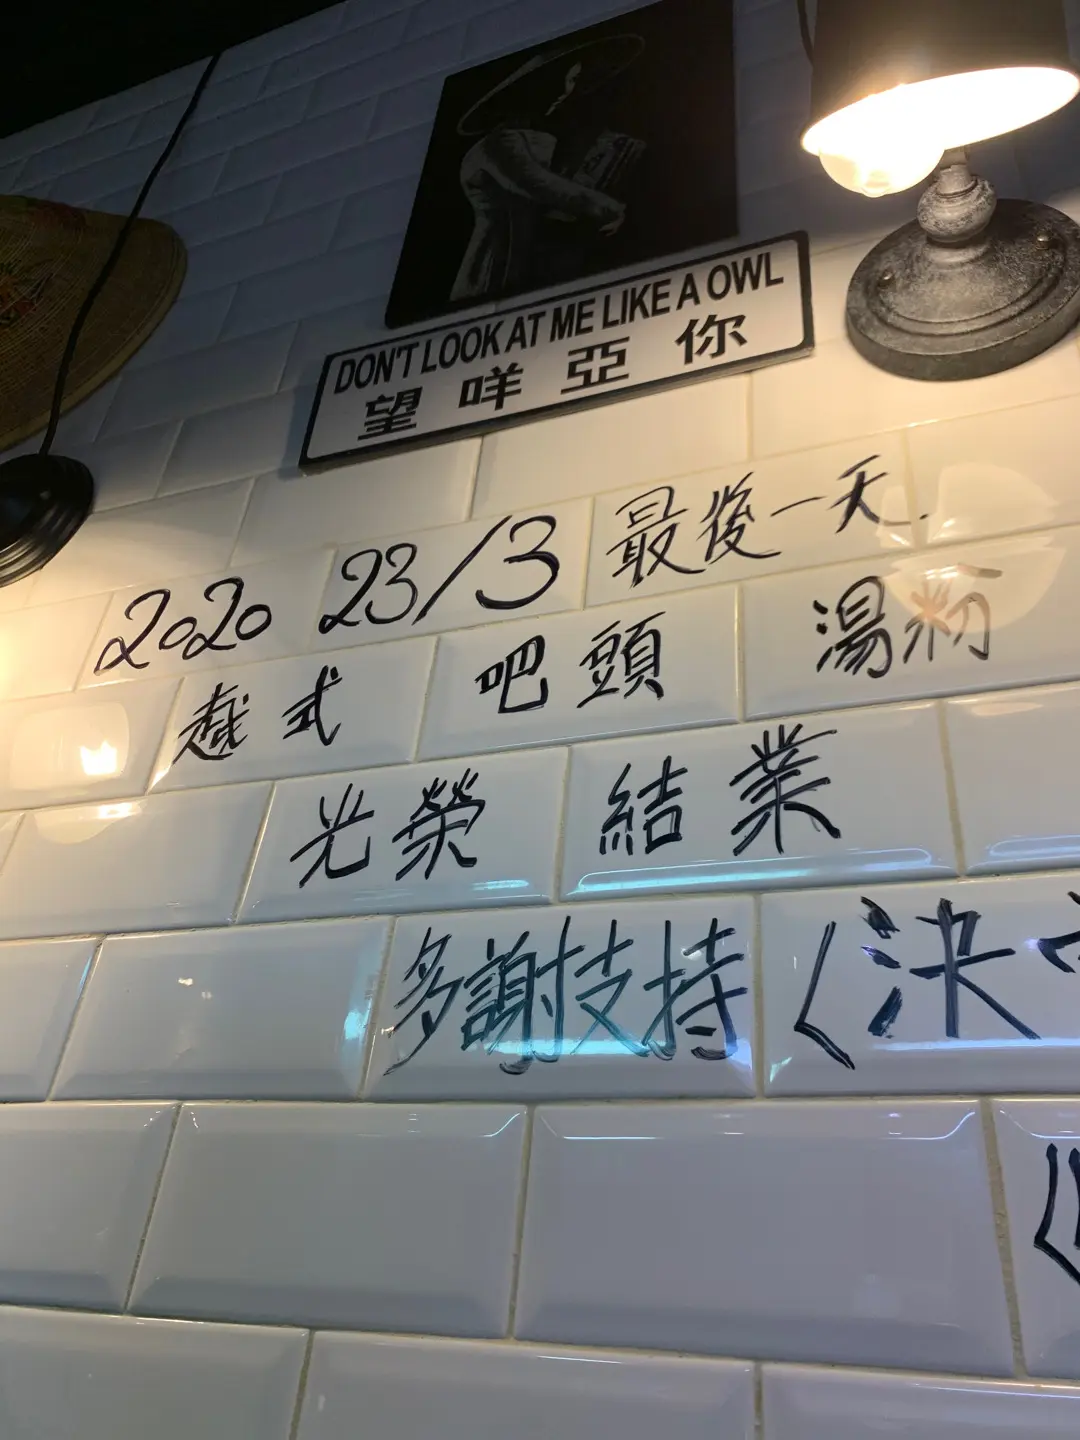 DON'T LOOK AT ME LIKE A OWL
望咩亞你
2020 23/3 最後一天
越式 吧頭 湯粉
光榮 結業
多謝支持〈決